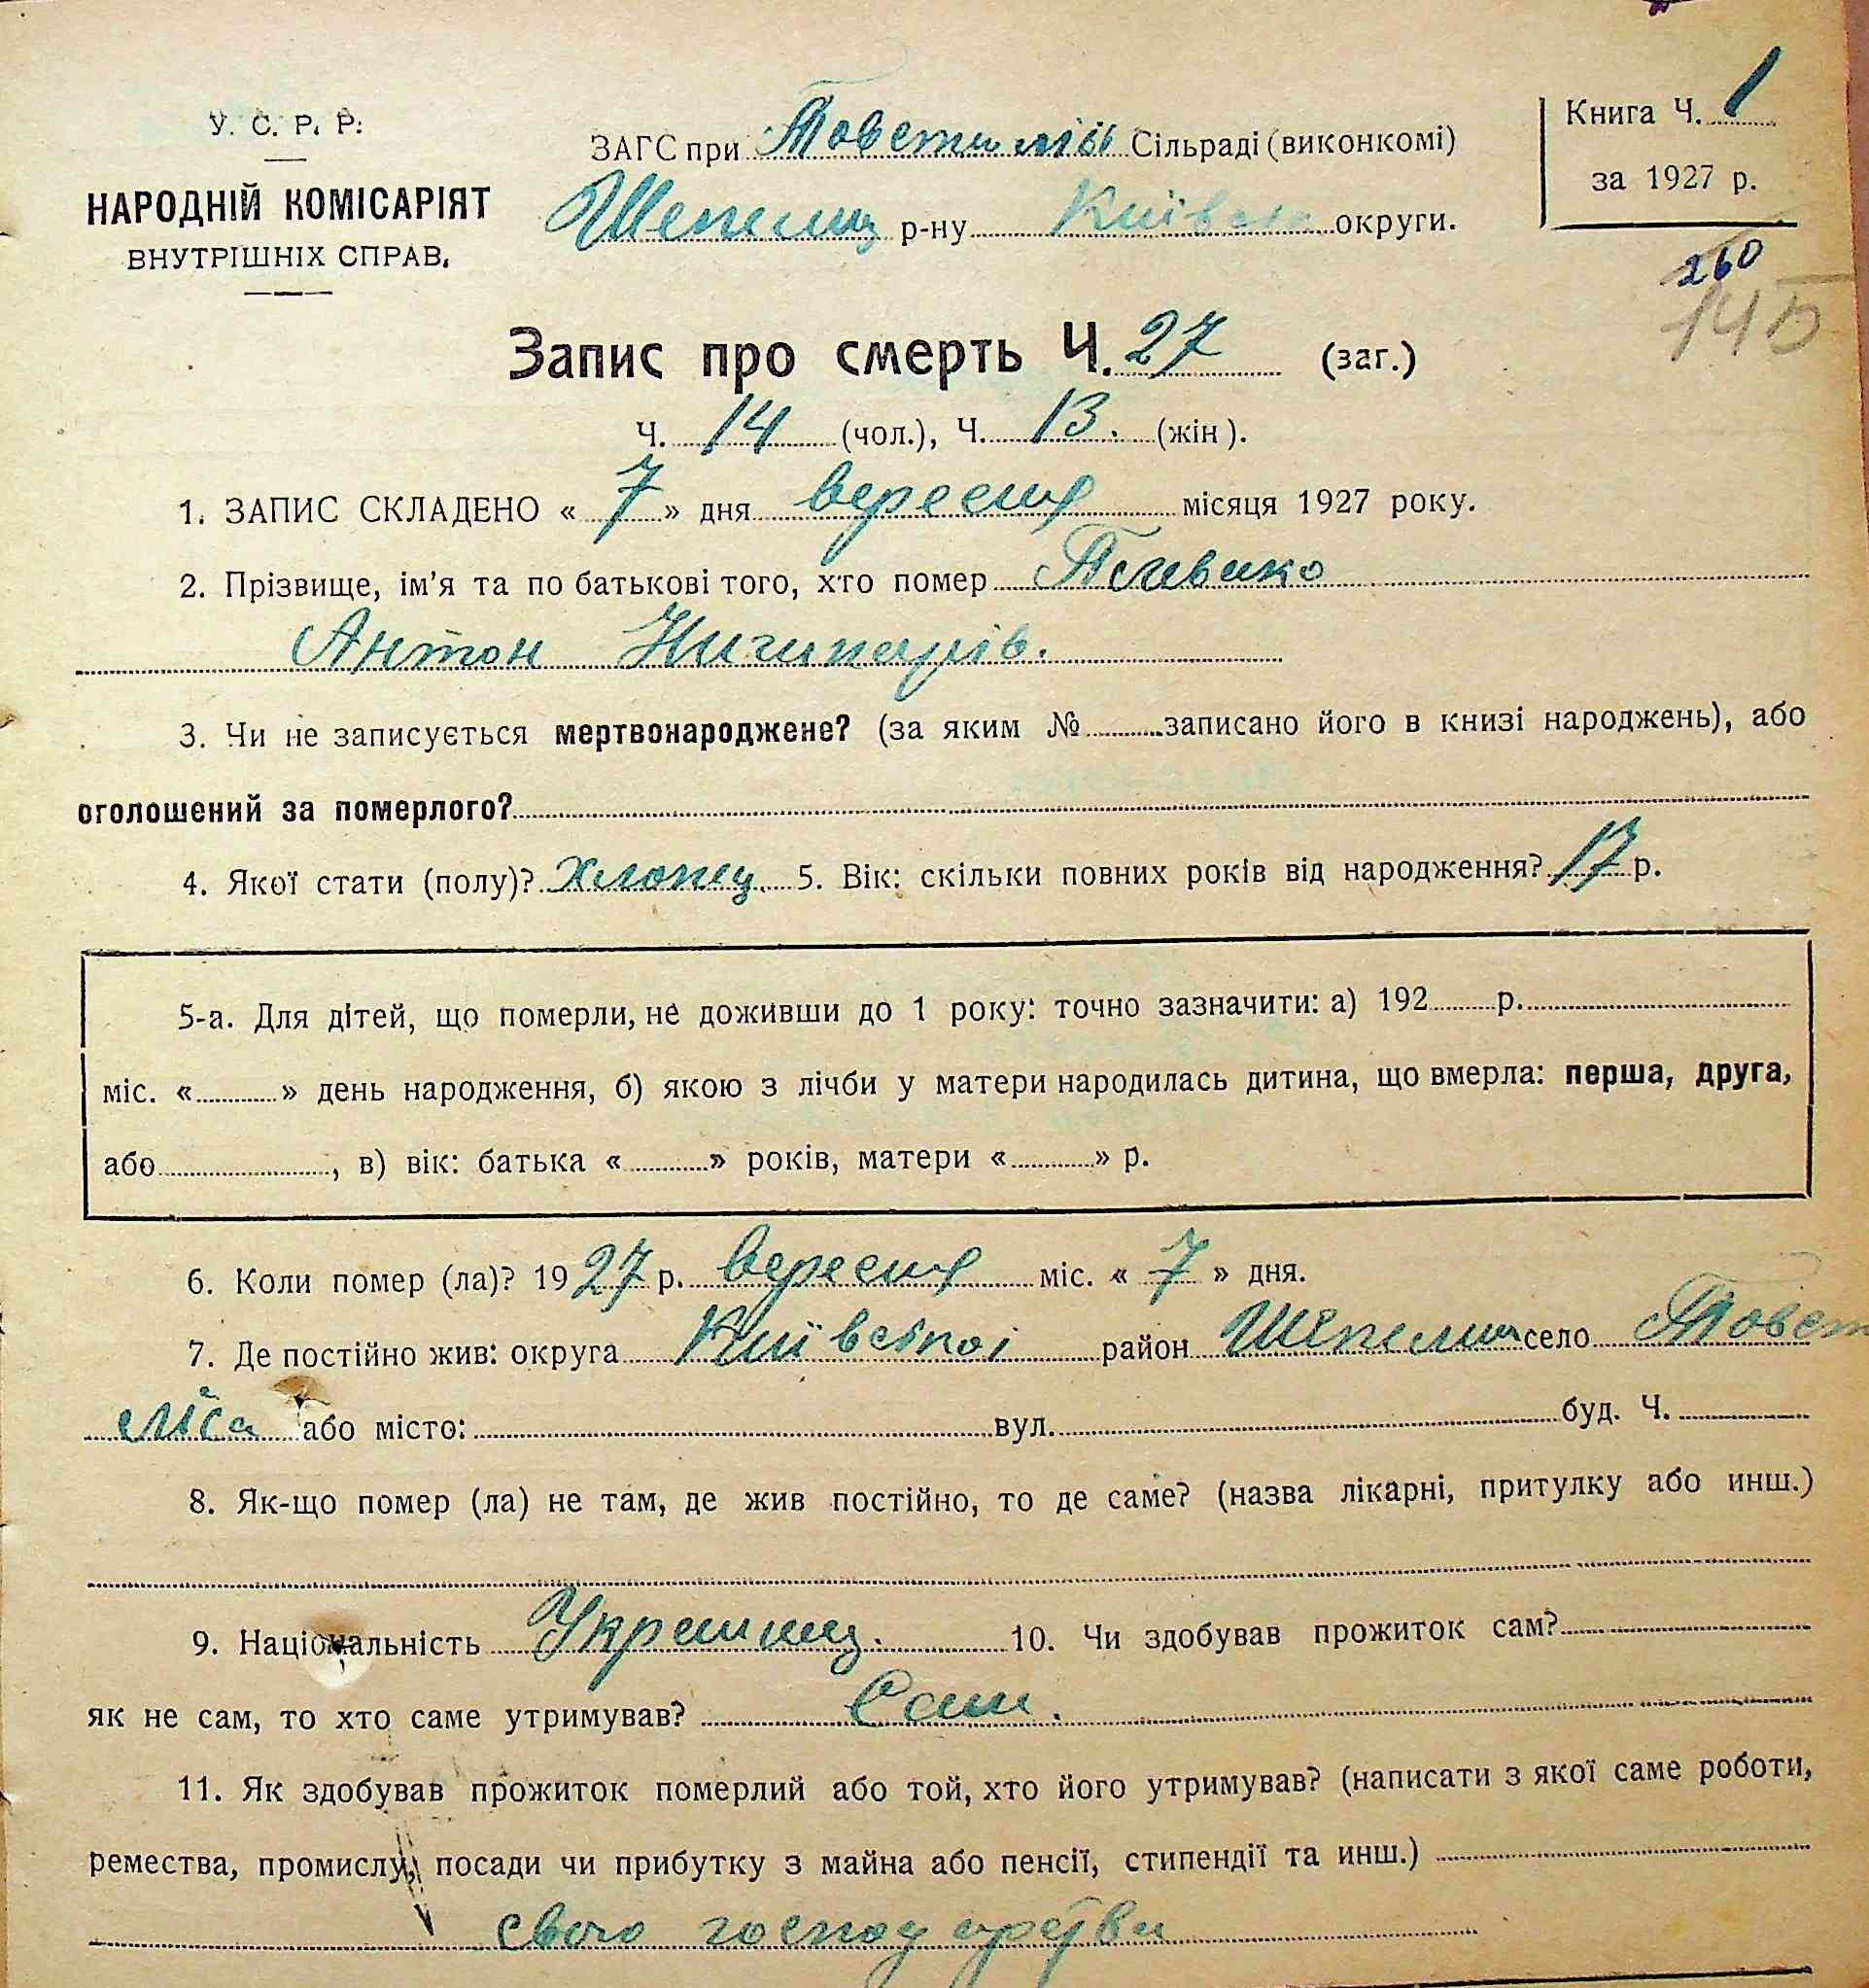 У. С. Р. Р.
НАРОДНІЙ КОМІСАРІЯТ
ВНУТРІШНІХ СПРАВ.
ЗАГС при Товстиліс Сільраді (виконкомі)
Шепелиц р-ну Київськ округи.
Книга Ч. 1
за 1927 р.
260
145
Запис про смерть Ч. 27 (заг.)
Ч. 14 (чол.), Ч. 13. (жін).
1. ЗАПИС СКЛАДЕНО « 7 » дня вересня місяця 1927 року.
2. Прізвище, ім'я та по батькові того, хто помер
Антон Ничипорів.
3. Чи не записується мертвонароджене? (за яким № записано його в книзі народжень), або
оголошений за померлого?
4. Якої стати (полу)? Хлопец. 5. Вік: скільки повних років від народження? 17 р.
5-а. Для дітей, що померли, не доживши до 1 року: точно зазначити: а) 192 р.
міс. « » день народження, б) якою з лічби у матери народилась дитина, що вмерла: перша, друга,
або , в) вік: батька « » років, матери « » р.
6. Коли помер (ла)? 1927 р. вересня міс. « 7 » дня.
7. Де постійно жив: округа Київської район Шепелиц село Товст
ліса або місто: вул. буд. Ч.
8. Як-що помер (ла) не там, де жив постійно, то де саме? (назва лікарні, притулку або инш.)
9. Національність Украинец. 10. Чи здобував прожиток сам?
як не сам, то хто саме утримував? Сам.
11. Як здобував прожиток померлий або той, хто його утримував? (написати з якої саме роботи,
ремества, промислу, посади чи прибутку з майна або пенсії, стипендії та инш.)
свого господарства